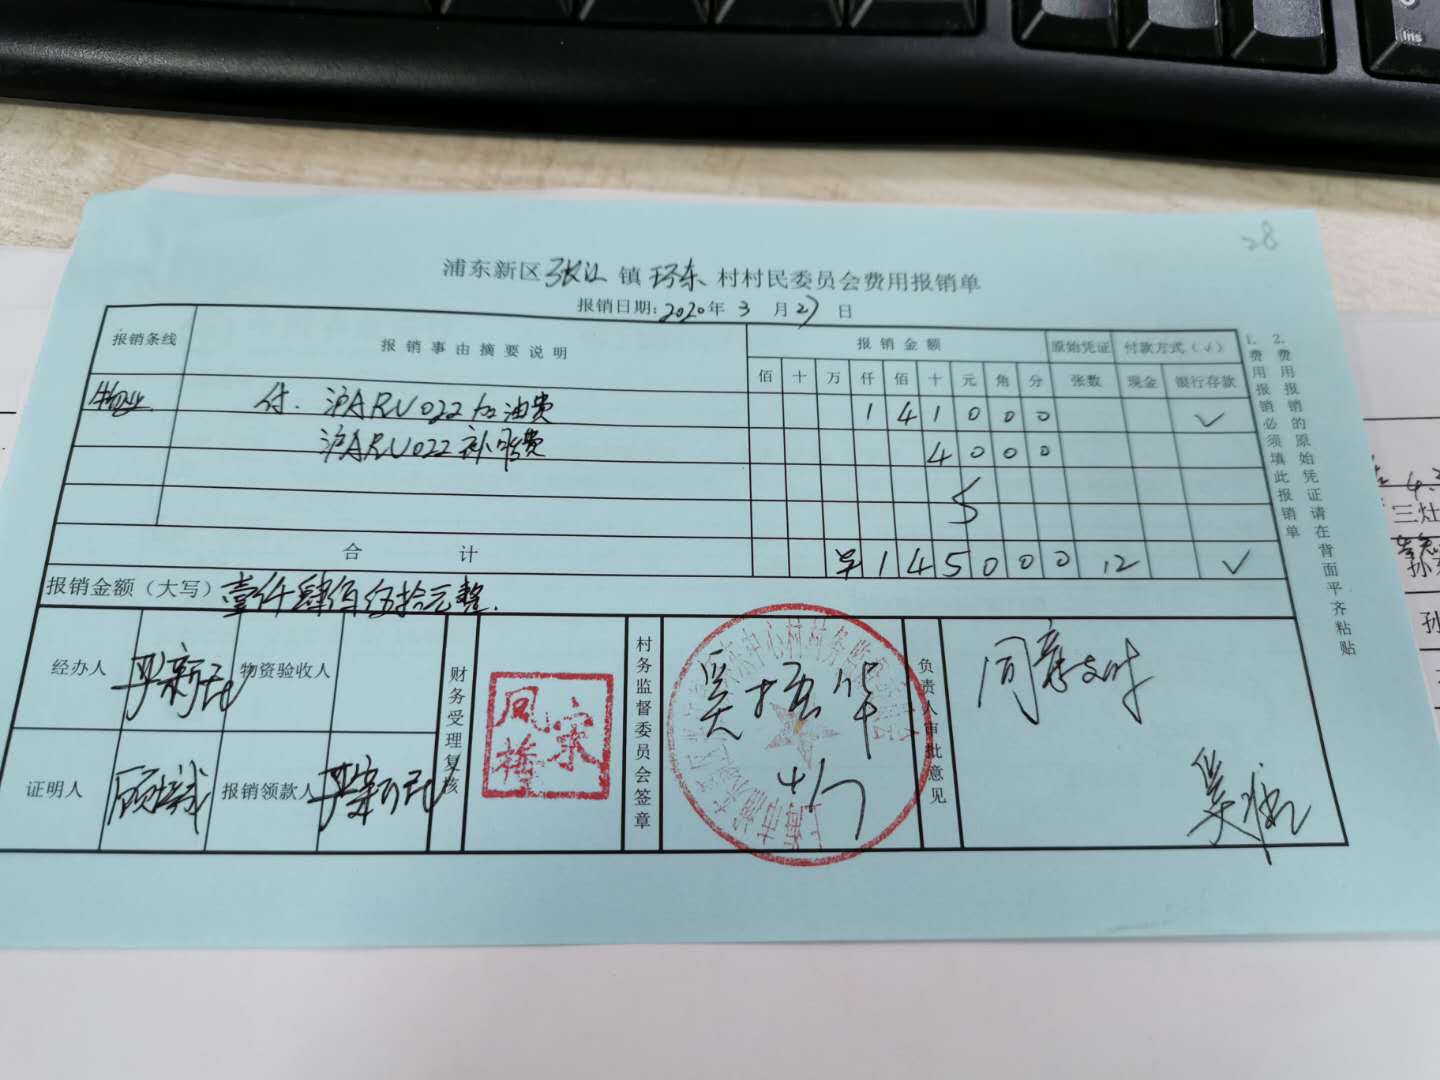 Ins
28
浦东新区张江镇环东村村民委员会费用报销单
报销日期:2020年3月27日
报销条线 报销事由摘要说明 报销金额 原始凭证 付款方式(√)
佰 十 万 仟 佰 十 元 角 分 张数 现金 银行存款
物业 付. 沪ARU022加油费 1 4 1 0 0 0 √
沪ARU022补胎费 4 0 0 0
合计 ¥ 1 4 5 0 0 0 12 √
报销金额(大写)壹仟肆佰伍拾元整.
经办人 物资验收人
证明人 报销领款人
财务受理复核
宋凤梅
村务监督委员会签章
吴振华
负责人审批意见
同意支付
1. 费用报销必须填此报销单
2. 费用报销的原始凭证请在背面平齐粘贴
三灶